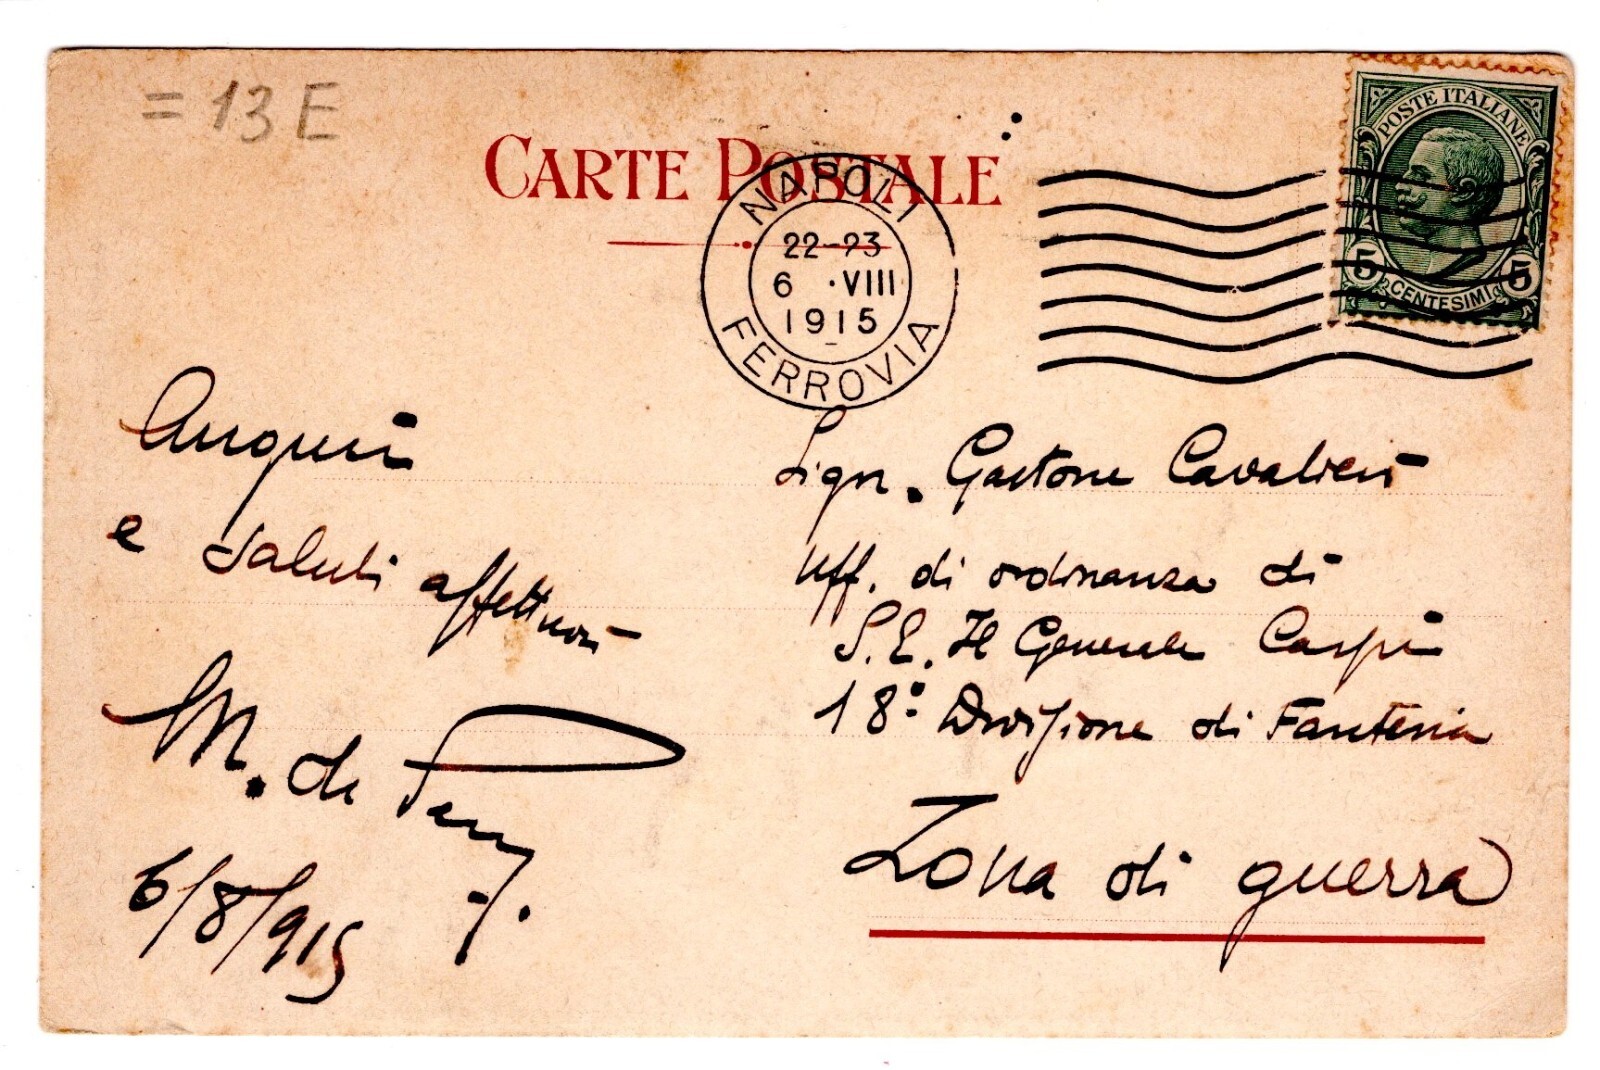 = 13 E
CARTE POSTALE
NAPOLI
22-23
6 ·VIII
1915
FERROVIA
POSTE ITALIANE
5 CENTESIMI 5
Auguri
e saluti affettuosi
M. de
6/8/915
Sign. Gastone Cavalieri
Uff. di ordinanza di
S.E. Il Generale Carpi
18° Divisione di Fanteria
Zona di guerra